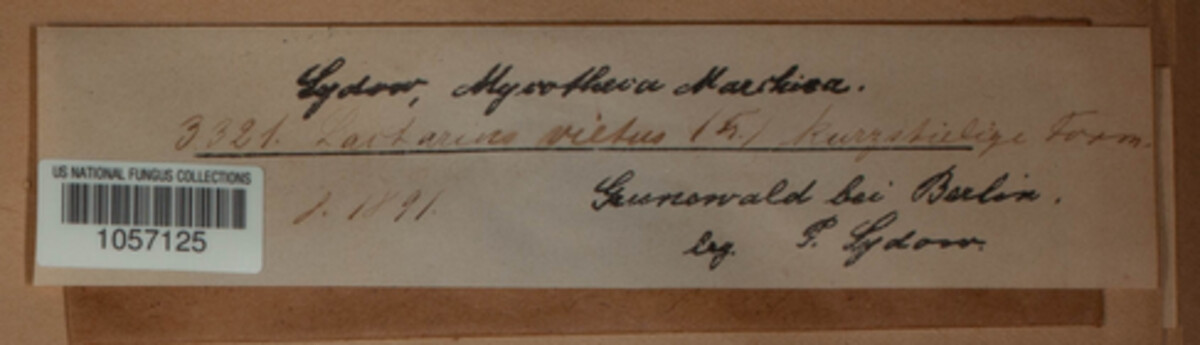 Sydow, Mycotheca Marchica.
3321. Lactarius vietus (Fr.) kurzstielige Form.
1891.
Grunewald bei Berlin.
leg. P. Sydow.
US NATIONAL FUNGUS COLLECTIONS
1057125